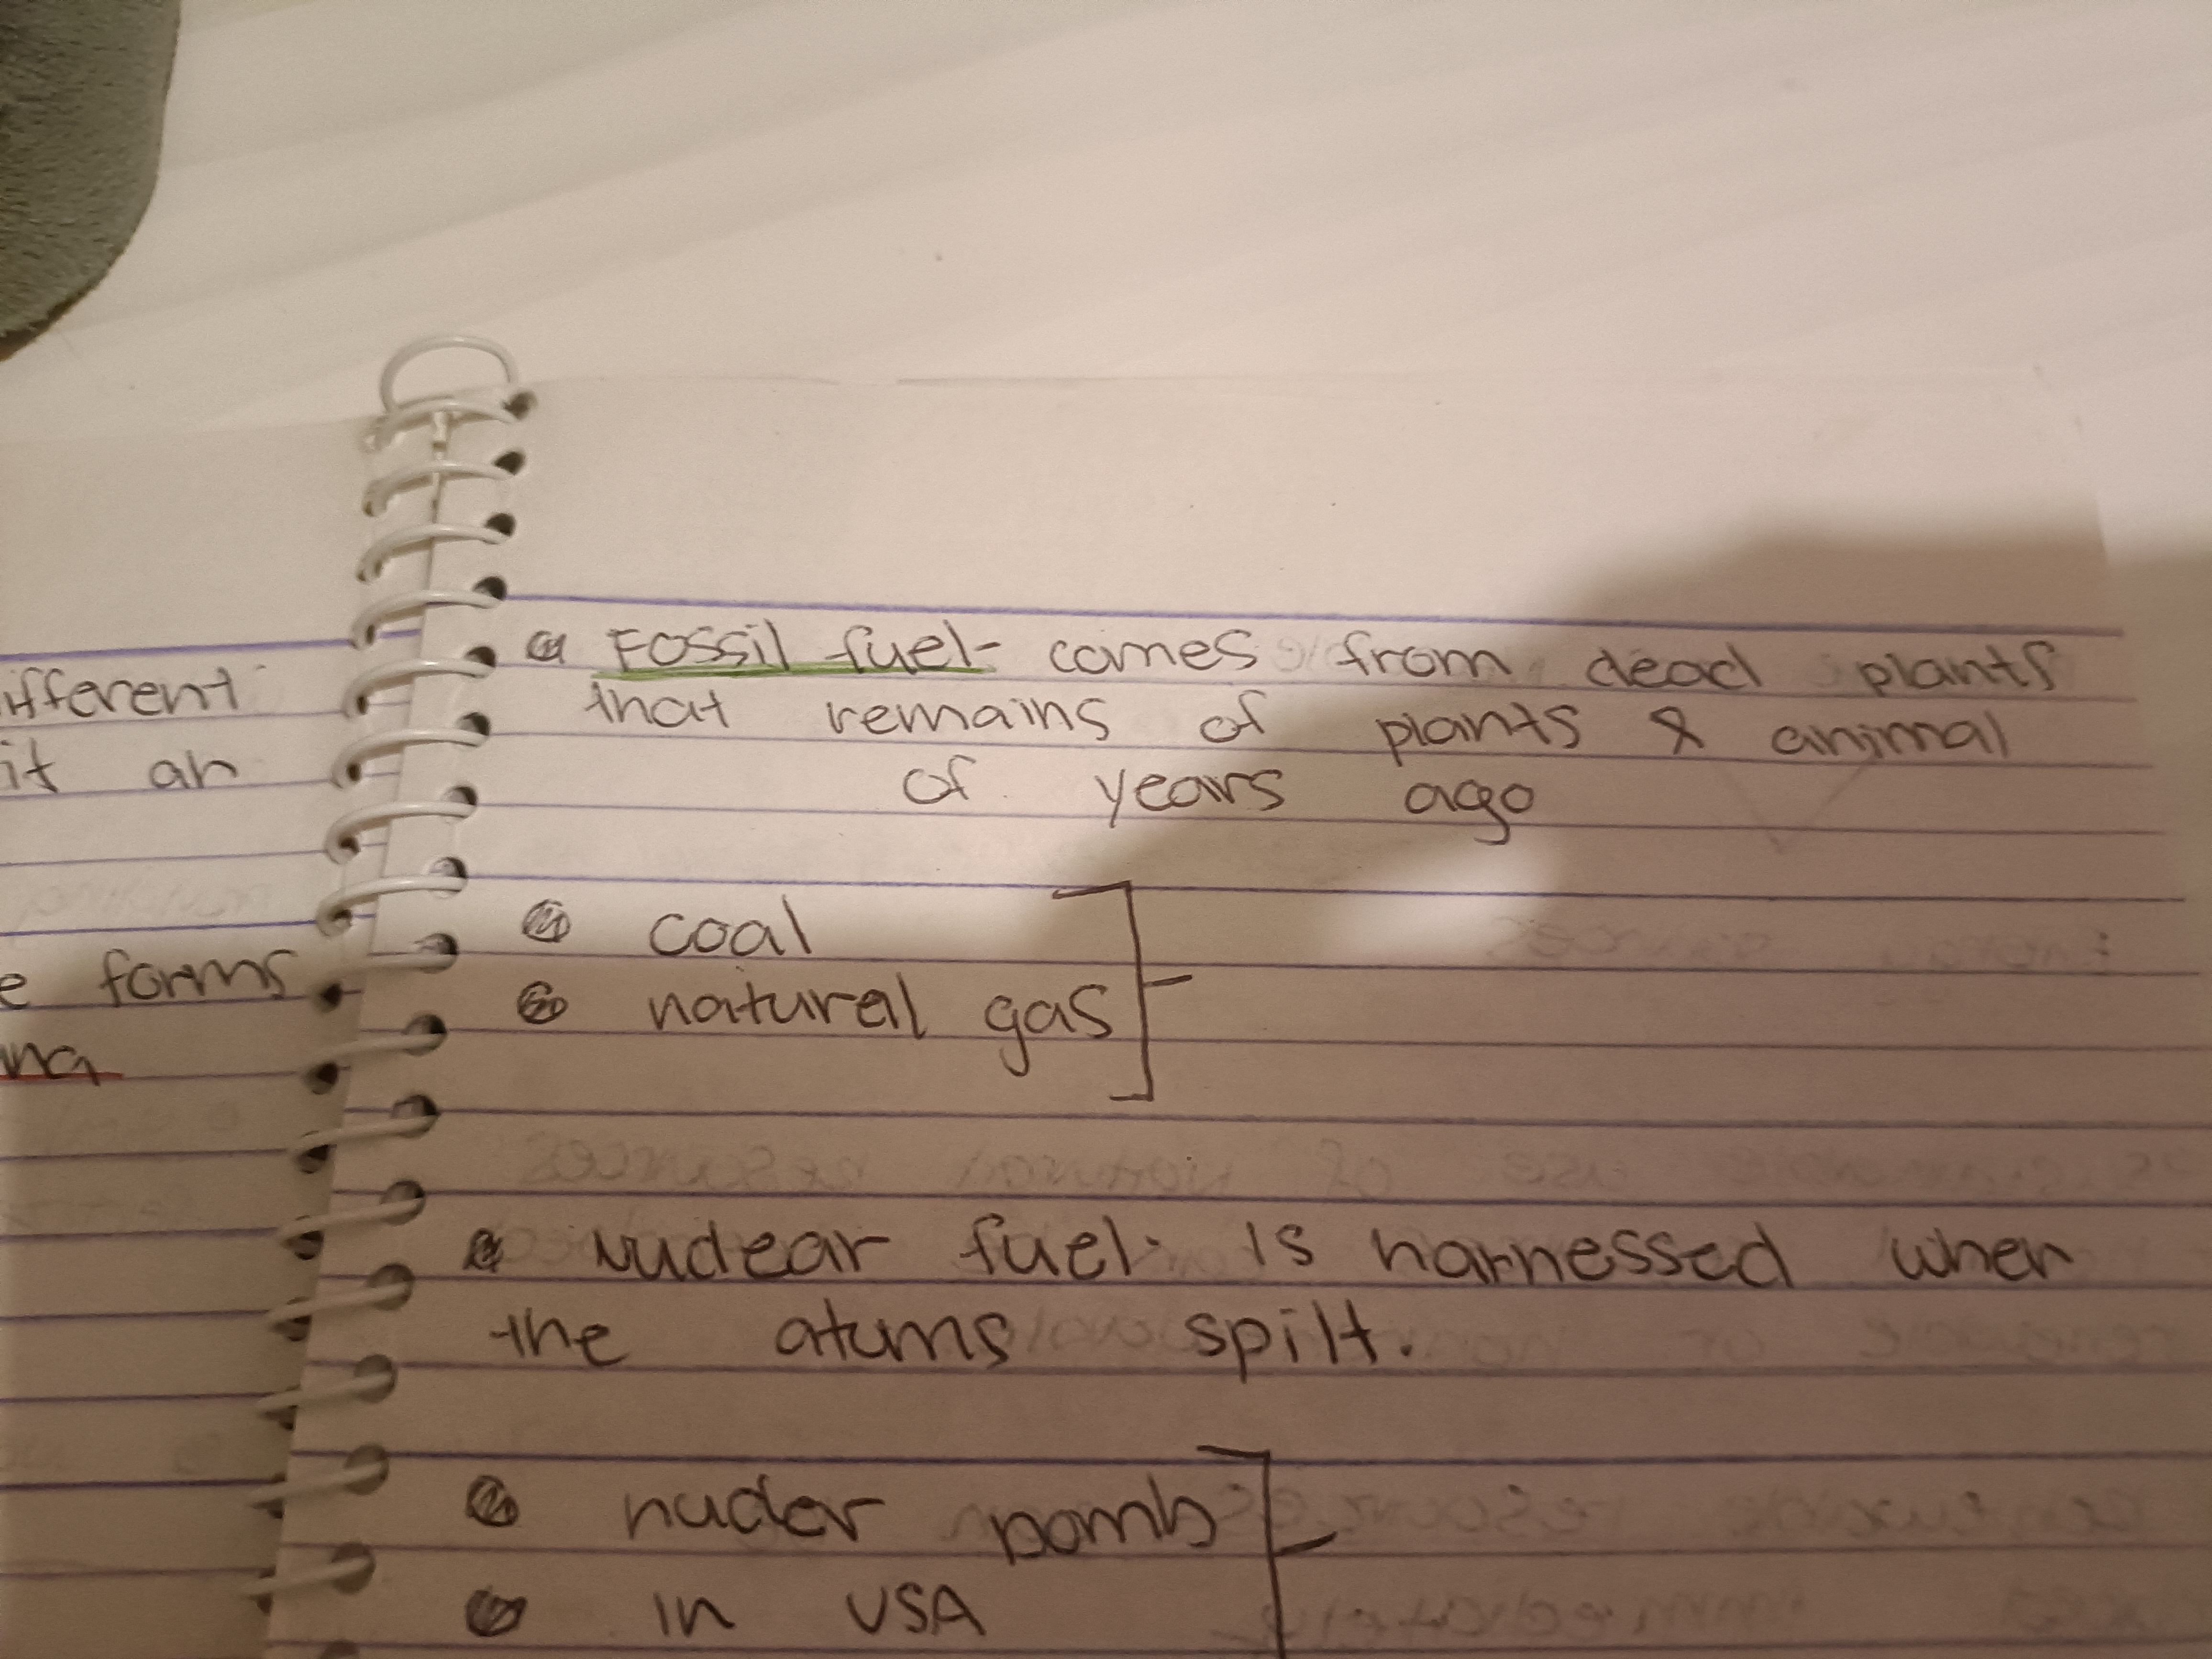 ifferent
it an
e forms
Fossil fuel- comes from dead plants
that remains of plants & animal
of years ago
coal
natural gas
nuclear fuel- is harnessed when
the atums spilt.
nucler bomb
in USA